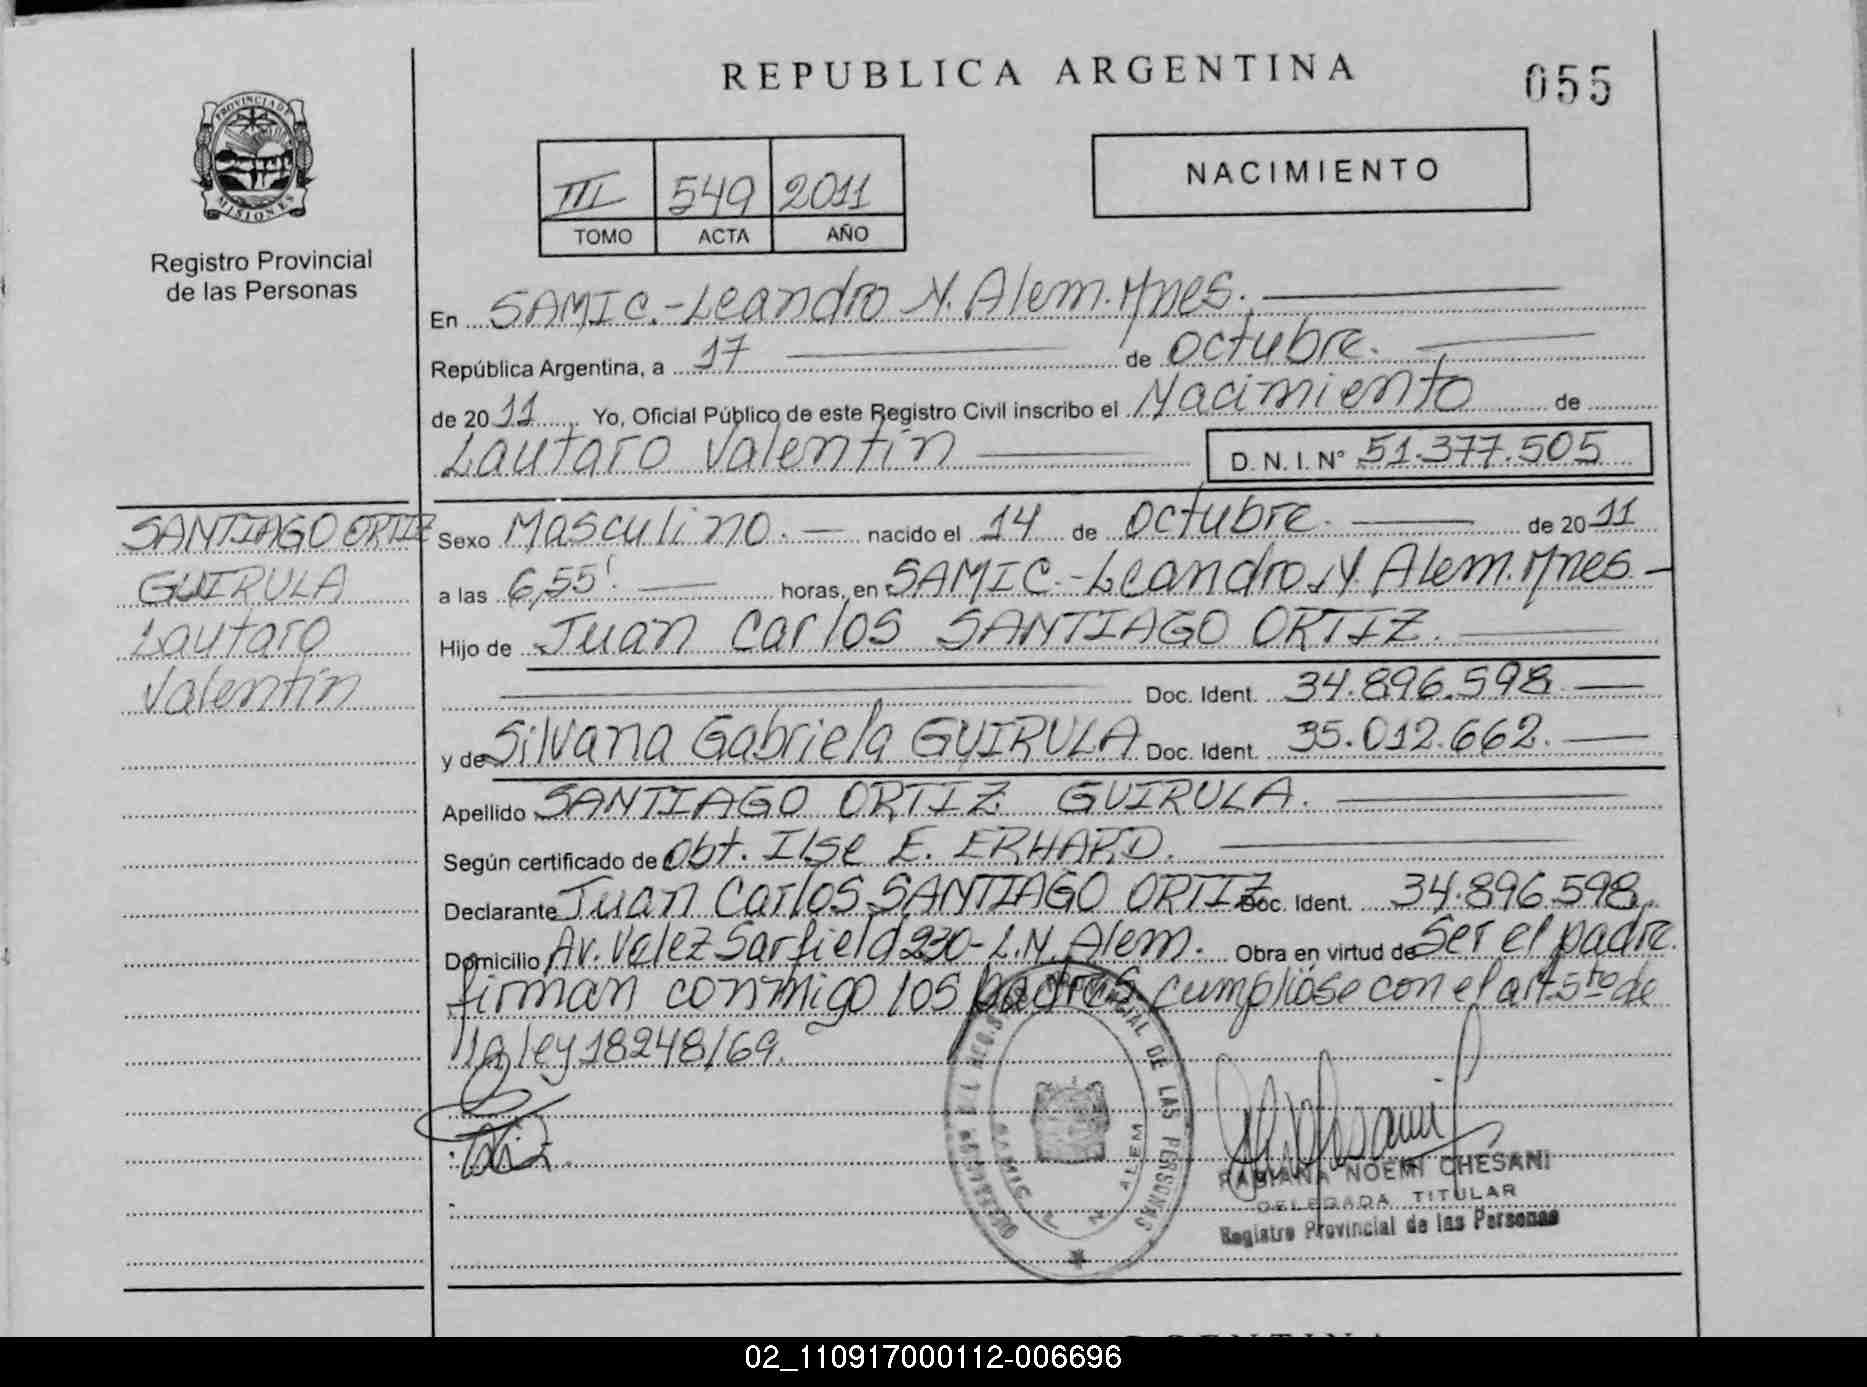 REPUBLICA ARGENTINA
055
PROVINCIA DE
MISIONES
Registro Provincial
de las Personas
III 549 2011
TOMO ACTA AÑO
NACIMIENTO
En SAMIC.-Leandro N. Alem. Mnes.
República Argentina, a 17 de octubre.
de 2011 Yo, Oficial Público de este Registro Civil inscribo el Nacimiento de
Lautaro Valentín D. N. I. N° 51.377.505
SANTIAGO ORTIZ
GUIRULA
Lautaro
Valentín
Sexo Masculino. nacido el 14 de octubre. de 2011
a las 6,55'. horas, en SAMIC.-Leandro N. Alem. Mnes.
Hijo de Juan Carlos SANTIAGO ORTIZ.
Doc. Ident. 34.896.598
y de Silvana Gabriela GUIRULA Doc. Ident. 35.012.662.
Apellido SANTIAGO ORTIZ GUIRULA.
Según certificado de Obt. Ilse E. ERHARD.
Declarante Juan Carlos SANTIAGO ORTIZ Doc. Ident. 34.896.598
Domicilio Av. Velez Sarfield 230-L.N. Alem. Obra en virtud de Ser el padre.
firman conmigo los padres, cumplióse con el art. 5to de
la ley 18248/69.
PROVINCIAL DE LAS PERSONAS
SAMIC L. N. ALEM
FABIANA NOEMI CHESANI
DELEGADA TITULAR
Registro Provincial de las Personas
02_110917000112-006696